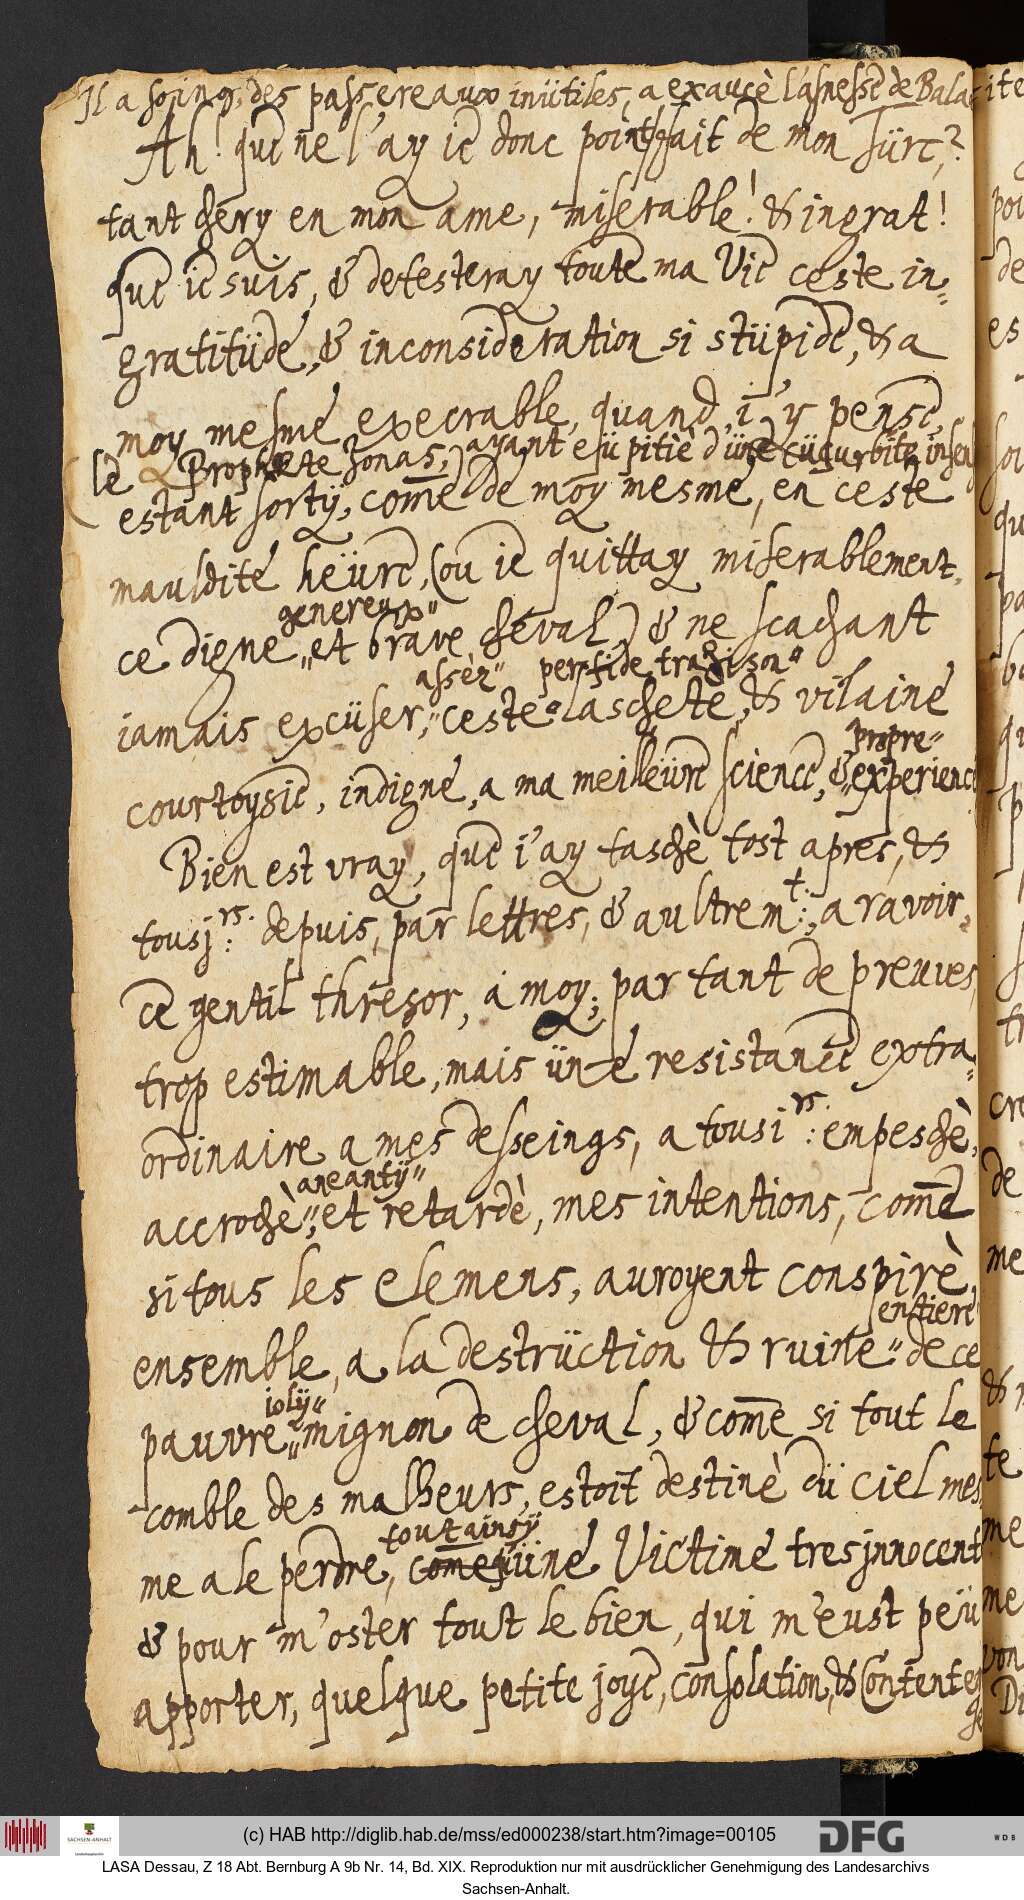 Il a soing, des passereaux inütiles, a exaucè l'asnesse de Bala
Ah! que ne l'ay ie donc point fait de mon Türc,?
tant chery en mon ame, miserable! & ingrat!
que ie suis, & detesteray toute ma Vie ceste in-
gratitüde, & inconsideration si stüpide, & a
moy mesme execrable, quand, i'y pense,
(le Prophete Jonas,) ayant eü pitiè d'üne cüqurbite insen
estant sortÿ, come de moy mesme, en ceste
mauldite heüre, (ou ie quittay miserablement,
genereux"
ce digne „et brave cheval) & ne scachant
assèz" perfide trahison"
iamais excüser, „ceste" lascheté, & vilaine
propre"
courtoysie, indigne, a ma meilleüre science, & „experience
Bien est vray, que i'ay taschè tost apres, &
tousj:rs. depuis, par lettres, & aultremt:, a ravoir,
ce gentil thresor, a moy, par tant de preuves,
trop estimable, mais üne resistance extra-
ordinaire a mes desseings, a tousi:rs. empeschè,
aneantÿ"
accrochè", et retardè, mes intentions, come
si tous les elemens, auroyent conspirè,
entiere
ensemble, a la destrüction & ruine" de ce
iolÿ"
pauvre „mignon de cheval, & come si tout le
comble des malheurs, estoit destinè dü ciel mes
tout ainsÿ
me a le perdre, come qüüne Victime tresjnnocent
& pour m'oster tout le bien, qui m'eust peü
apporter, quelque petite joye, consolation, & Contente
ite
(c) HAB http://diglib.hab.de/mss/ed000238/start.htm?image=00105
SACHSEN-ANHALT
DFG
WDB
LASA Dessau, Z 18 Abt. Bernburg A 9b Nr. 14, Bd. XIX. Reproduktion nur mit ausdrücklicher Genehmigung des Landesarchivs
Sachsen-Anhalt.